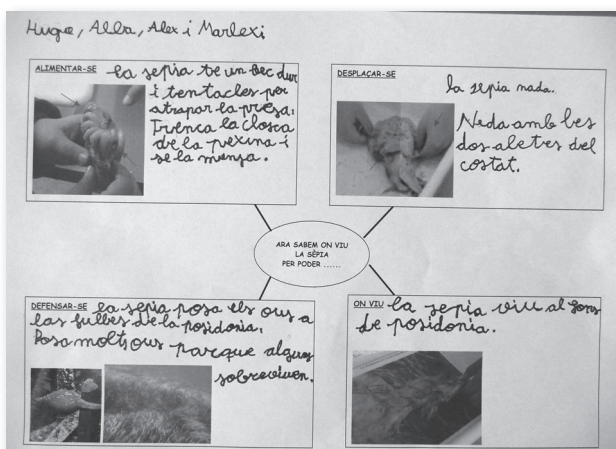 Hugo, Alba, Alex i Marlexi
ALIMENTAR-SE la sepia te un bec dur
i tentacles per
atrapar la presa.
Trenca la closca
de la pexina i
se la menja.
DESPLAÇAR-SE
la sepia nada.
Neda amb les
dos aletes del
costat.
ARA SABEM ON VIU
LA SÈPIA
PER PODER ......
DEFENSAR-SE la sepia posa els ous a
las fulles de la posidonia.
Posa molts ous parque algunos
sobreviuen.
ON VIU la sepia viu al fons
de posidonia.